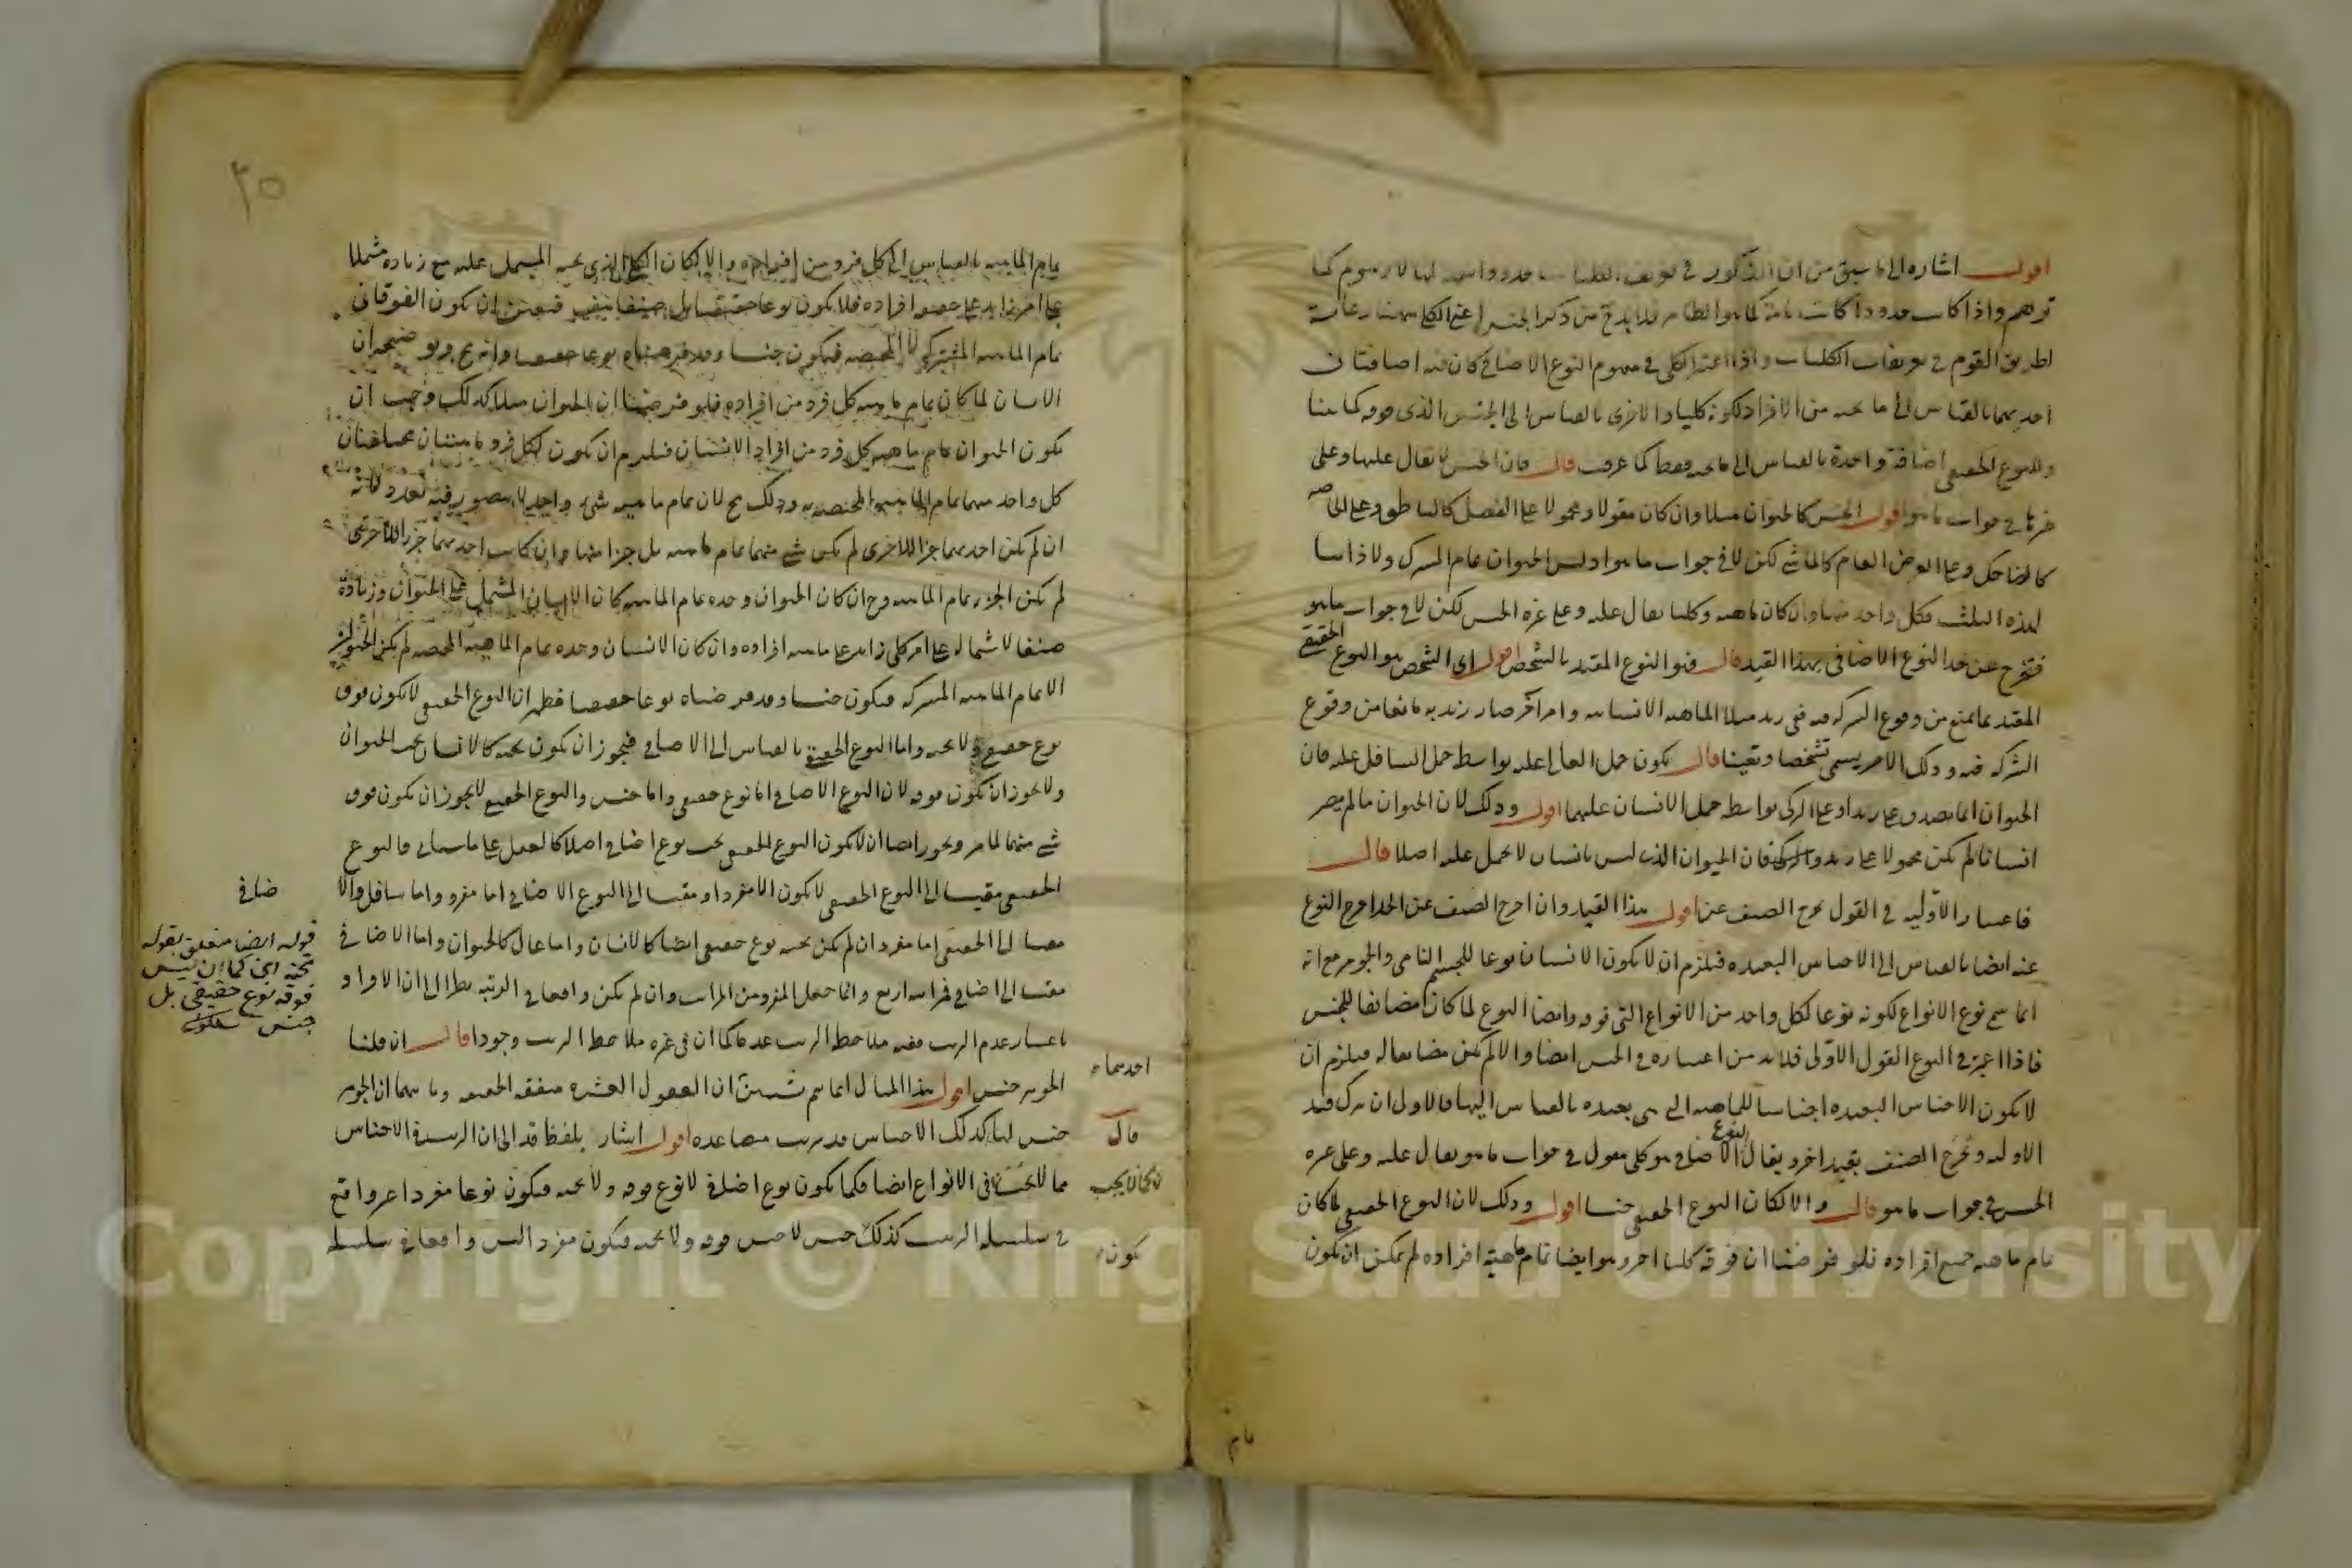 اقول اشاره الى ما سبق من ان المذكور في تعريف الكليات حدود اسمية لها لا رسوم كما
توهم واذا كانت حدودا كانت تامة كما هو الظاهر فلا بد من ذكر الجنس اعني الكلي ههنا رعاية
لطريق القوم في تعريفات الكليات واذا اعتبر الكلي في مفهوم النوع الاضافي كان فيه اضافتان
احديهما بالقياس الى ما تحته من الافراد لكونه كليا والاخرى بالقياس الى الجنس الذي فوقه كما بينا
وللنوع الحقيقي اضافة واحدة بالقياس الى ما تحته فقط كما عرفت قال فان الجنس لا يقال عليها وعلى
غيرها في جواب ما هو اقول الجنس كالحيوان مثلا وان كان مقولا ومحمولا على الفصل كالناطق وعلى الخاصة
كالضاحك وعلى العرض العام كالماشي لكن لا في جواب ما هو اذ ليس الحيوان تمام المشترك ولا ذاتيا
لهذه الثلث فكل واحد منها وان كان ماهية وكليا يقال عليه وعلى غيره الجنس لكن لا في جواب ما هو
فتخرج عن حد النوع الاضافي بهذا القيد قال فهو النوع المقيد بالتشخص اقول اي الشخص هو النوع الحقيقي
المقيد بما يمنع من وقوع الشركة فيه ففي زيد مثلا الماهية الانسانية وامر آخر صار زيد به مانعا من وقوع
الشركة فيه وذلك الامر يسمى تشخصا وتعينا قال يكون حمل العالي عليه بواسطة حمل السافل عليه فان
الحيوان انما يصدق على زيد او على التركي بواسطة حمل الانسان عليهما اقول وذلك لان الحيوان ما لم يصر
انسانا لم يكن محمولا على زيد والتركي فان الحيوان الذي ليس بانسان لا يحمل عليه اصلا قال
فاعتبار الاولية في القول يخرج الصنف عن اقول هذا القيد وان اخرج الصنف عن الحد اخرج النوع
عنه ايضا بالقياس الى الاجناس البعيدة فيلزم ان لا يكون الانسان نوعا للجسم النامي والجوهر مع انه
انما سمي نوع الانواع لكونه نوعا لكل واحد من الانواع التي فوقه وايضا النوع لما كان مضايفا للجنس
فاذا اعتبر في النوع القول الاولى فلا بد من اعتباره في الجنس ايضا والا لم يكن مضايفا له فيلزم ان
لا يكون الاجناس البعيدة اجناسا للماهية التي هي بعيدة بالقياس اليها فالاولى ان يترك قيد
الاولية ويخرج الصنف بقيد اخر ويقال النوع الاضافي هو كلي مقول في جواب ما هو يقال عليه وعلى غيره
الجنس في جواب ما هو قال والا لكان النوع الحقيقي جنسا اقول وذلك لان النوع الحقيقي لما كان
تمام ماهية جميع افراده فلو فرضنا ان فوقه كليا اخر وهو ايضا تمام ماهية افراده لم يمكن ان يكون
تمام
٢٥
تمام الماهية بالقياس الى كل فرد من افراده والا لكان الكلي الذي تحته المشتمل عليه مع زيادة مشتملا
على امر زايد على حصة افراده فلا يكون نوعا حقيقيا بل صنفا فتعين ان يكون الفوقاني
تمام الماهية المشتركة لا المختصة فيكون جنسا وقد فرضناه نوعا حقيقيا وانه مح وتوضيحه ان
الانسان لما كان تمام ماهية كل فرد من افراده فلو فرضنا ان الحيوان مثلا كذلك وجب ان
يكون الحيوان تمام ماهية كل فرد من افراد الانسان فيلزم ان يكون لكل فرد ماهيتان مختلفتان
كل واحد منهما تمام الماهية المختصة به وذلك مح لان تمام ماهية شيء واحد لا يتصور فيه تعدد لانه
ان لم يكن احديهما جزا للاخرى لم يكن شيء منهما تمام ماهيته بل جزا منها وان كانت احديهما جزا للاخرى
لم يكن الجزء تمام الماهية وح ان كان الحيوان وحده تمام الماهية كان الانسان المشتمل على الحيوان وزيادة
صنفا لاشتماله على امر كلي زايد على ماهية افراده وان كان الانسان وحده تمام الماهية المختصة لم يكن الحيوان
الا تمام الماهية المشتركة فيكون جنسا وقد فرضناه نوعا حقيقيا فظهر ان النوع الحقيقي لا يكون فوقه
نوع حقيقي ولا تحته واما النوع الحقيقي بالقياس الى الاضافي فيجوز ان يكون تحته كالانسان تحت الحيوان
ولا يجوز ان يكون فوقه لان النوع الاضافي اما نوع حقيقي واما جنس والنوع الحقيقي لا يجوز ان يكون فوق
شيء منهما لما مر ويجوز ايضا ان لا يكون النوع الحقيقي تحت نوع اضافي اصلا كالعقل على ما سيأتي فالنوع
الحقيقي مقيسا الى النوع الحقيقي لا يكون الا مفردا ومقيسا الى النوع الاضافي اما مفرد واما سافل والا
ضافي
مقيسا الى الحقيقي اما مفرد ان لم يكن تحته نوع حقيقي ايضا كالانسان واما عال كالحيوان واما الاضافي
مقيسا الى اضافي فمراتبه اربع وانما جعل المفرد من المراتب وان لم يكن واقعا في الرتبة نظرا الى ان الافراد
باعتبار عدم الترتب ففيه ملاحظة الترتب عدما كما ان في غيره ملاحظة الترتب وجودا قال ان قلنا
الجوهر جنس اقول هذا المثال انما يتم ان العقول العشرة متفقة الحقيقة وثانيهما ان الجوهر
جنس لها كذلك الاجناس قد يترتب متصاعدة اقول اشار بلفظ قد الى ان الترتيب في الاجناس
مما لا يجب في الانواع ايضا فكما يكون نوع اضافي لا نوع فوقه ولا تحته فيكون نوعا مفردا غير واقع
في سلسلة الترتب كذلك جنس لا جنس فوقه ولا تحته فيكون مفردا ليس واقعا في سلسلة
قوله ايضا متعلق بقوله
تحته اي كما ان ليس
فوقه نوع حقيقي بل
جنس
احديهما
قال
كما لا يجب
يكون
Copyright © King Saud University